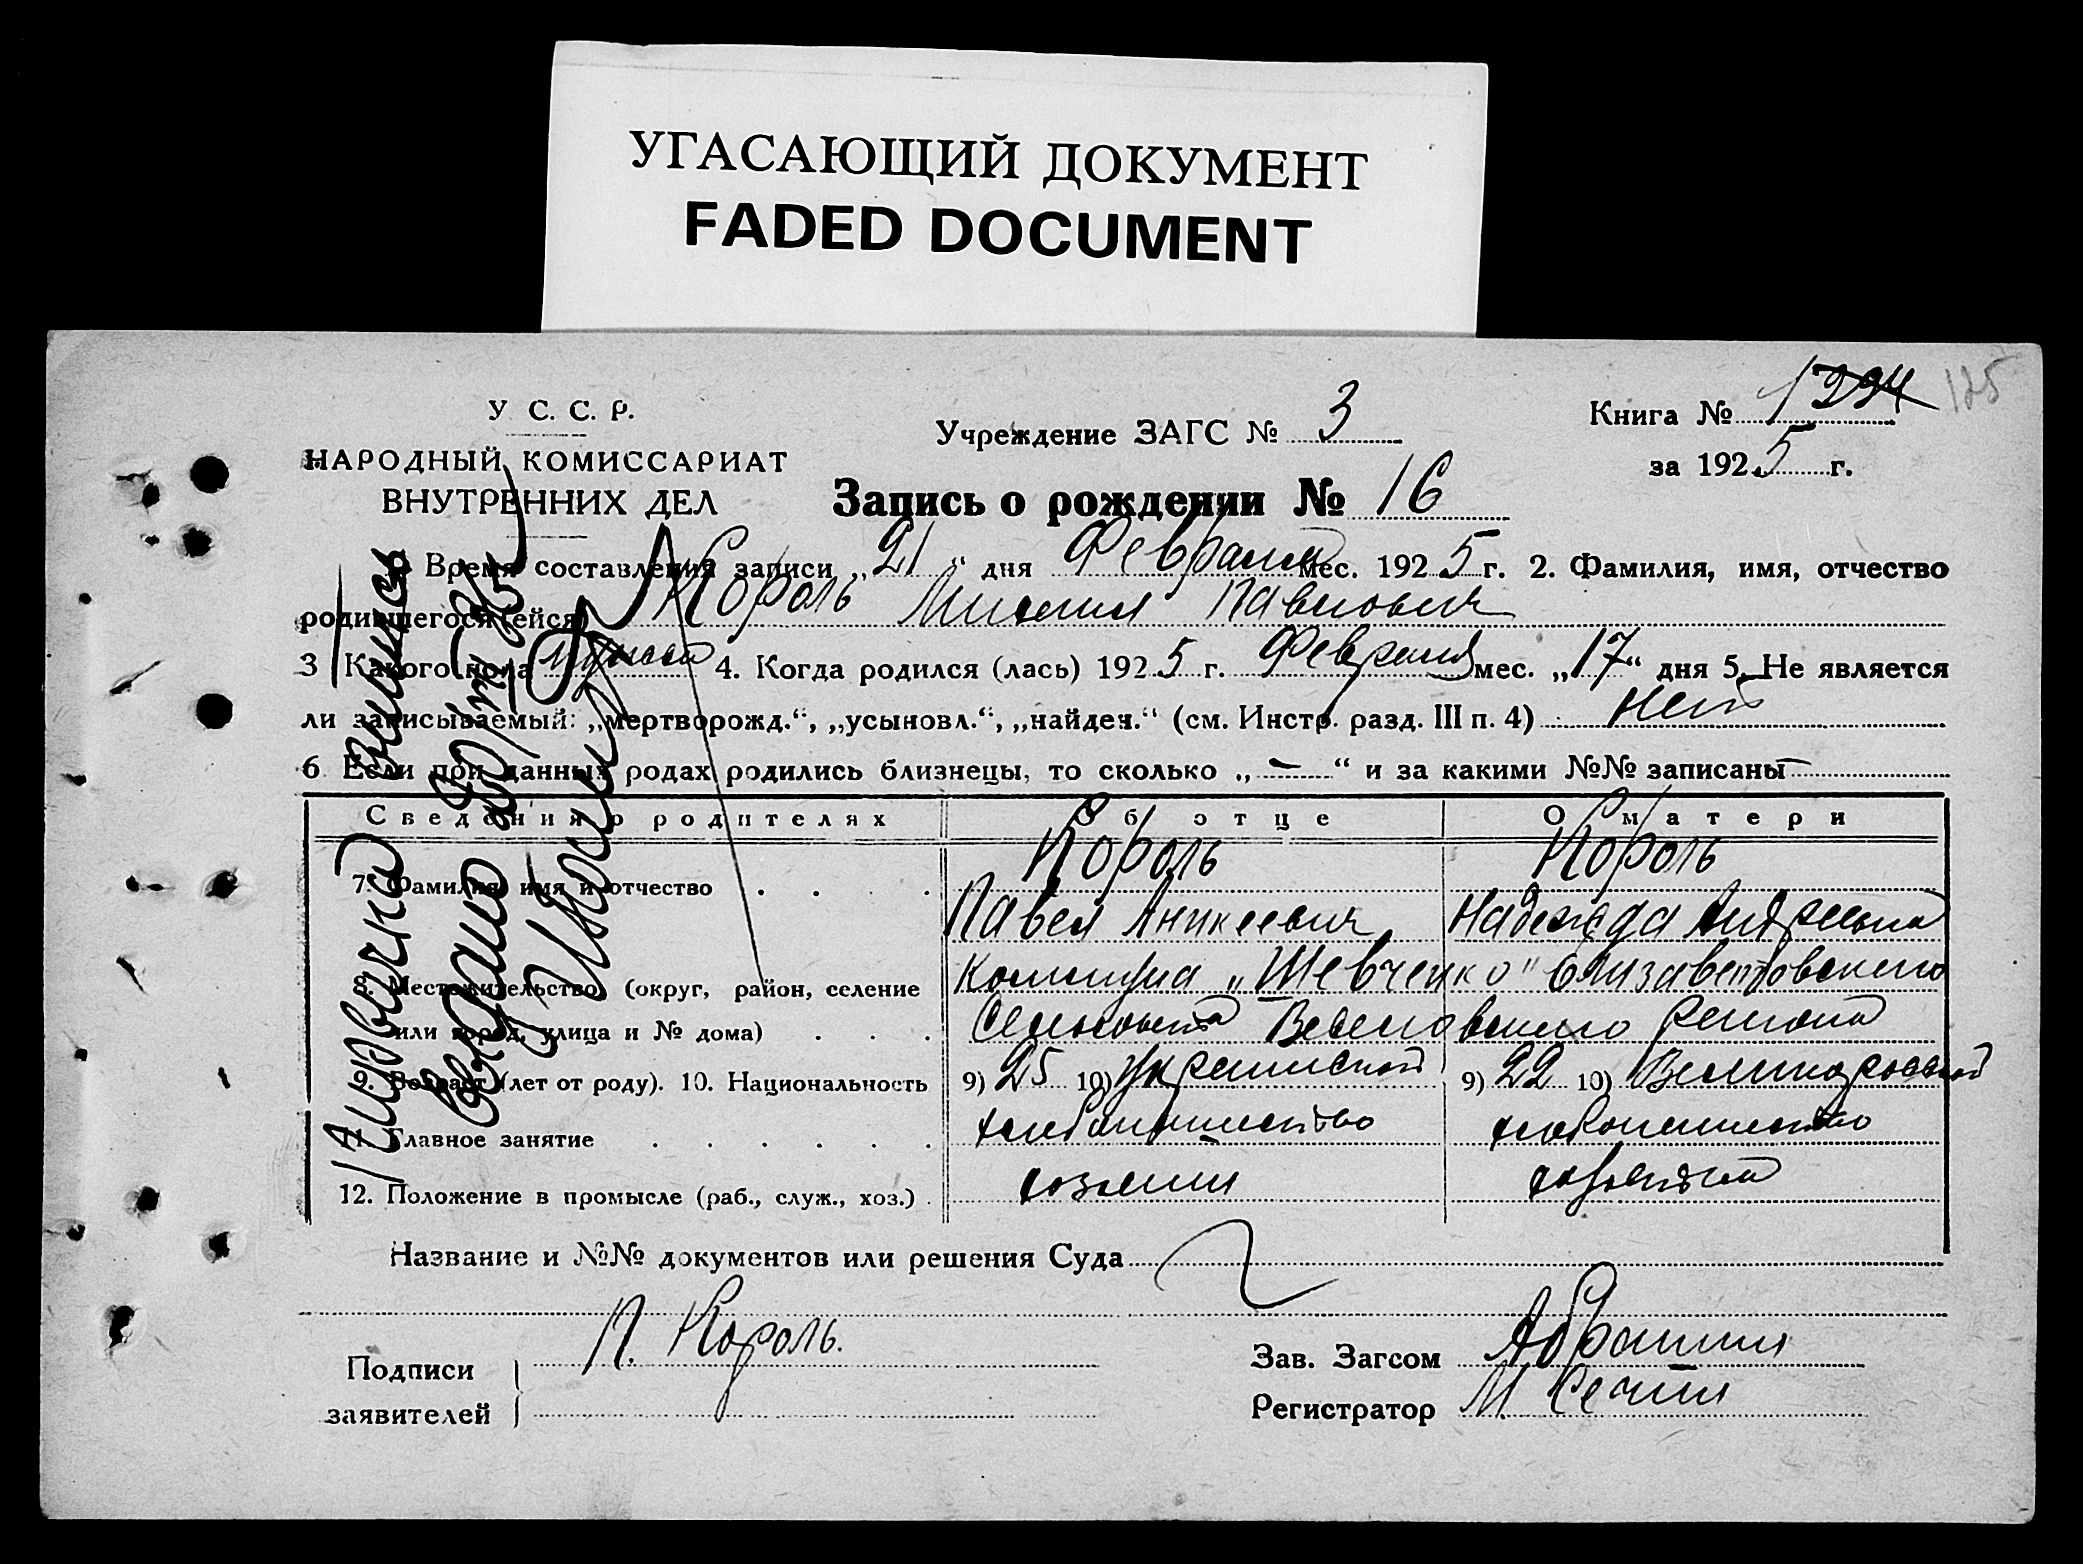 УГАСАЮЩИЙ ДОКУМЕНТ
FADED DOCUMENT
125
У С. С. Р.
НАРОДНЫЙ КОМИССАРИАТ
ВНУТРЕННИХ ДЕЛ
Учреждение ЗАГС № 3
Книга № 1
за 1925 г.
Запись о рождении № 16
Время составления записи „21“ дня Февраля мес. 1925 г. 2. Фамилия, имя, отчество
родившегося (ейся) Король Павлович
3 Какого пола 4. Когда родился (лась) 1925 г. Февраля мес. „17“ дня 5. Не является
ли записываемый: „мертворожд.“, „усыновл.“, „найден.“ (см. Инстр. разд. III п. 4) Нет
6 Если при данных родах родились близнецы, то сколько „—“ и за какими №№ записаны —
Сведения о родителях Об отце О матери
Король Король
7. Фамилия, имя и отчество
Павел Аникеевич Надежда Андреевна
Коммуна „Шевченко“ Елизаветовского
8. Местожительство (округ, район, селение
или город, улица и № дома)
Сельсовета Веселовского района
9. Возраст (лет от роду). 10. Национальность 9) 25 10) Украинской 9) 22 10) Великоросской
11. Главное занятие хлебопашество хлебопашество
12. Положение в промысле (раб., служ., хоз.) хозяин
Название и №№ документов или решения Суда
Подписи
заявителей
П. Король.
Зав. Загсом
Регистратор М.